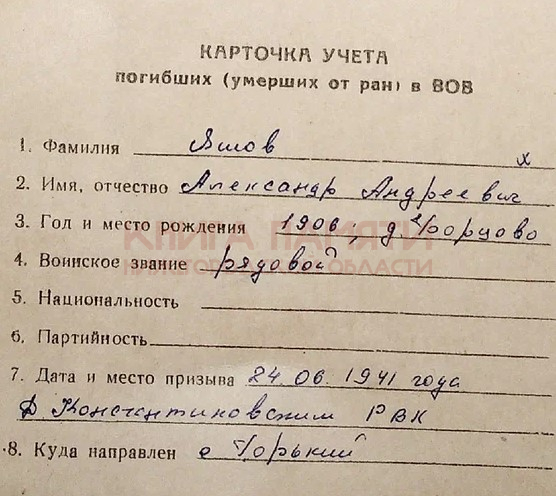 КАРТОЧКА УЧЕТА
погибших (умерших от ран) в ВОВ
1. Фамилия Яшов х
2. Имя, отчество Александр Андреевич
3. Год и место рождения 1906, д
КНИГА ПАМЯТИ
4. Воинское звание рядовой
НИЖЕГОРОДСКОЙ ОБЛАСТИ
5. Национальность
6. Партийность
7. Дата и место призыва 24.06.1941 года
Д Константиновским РВК
8. Куда направлен Горький